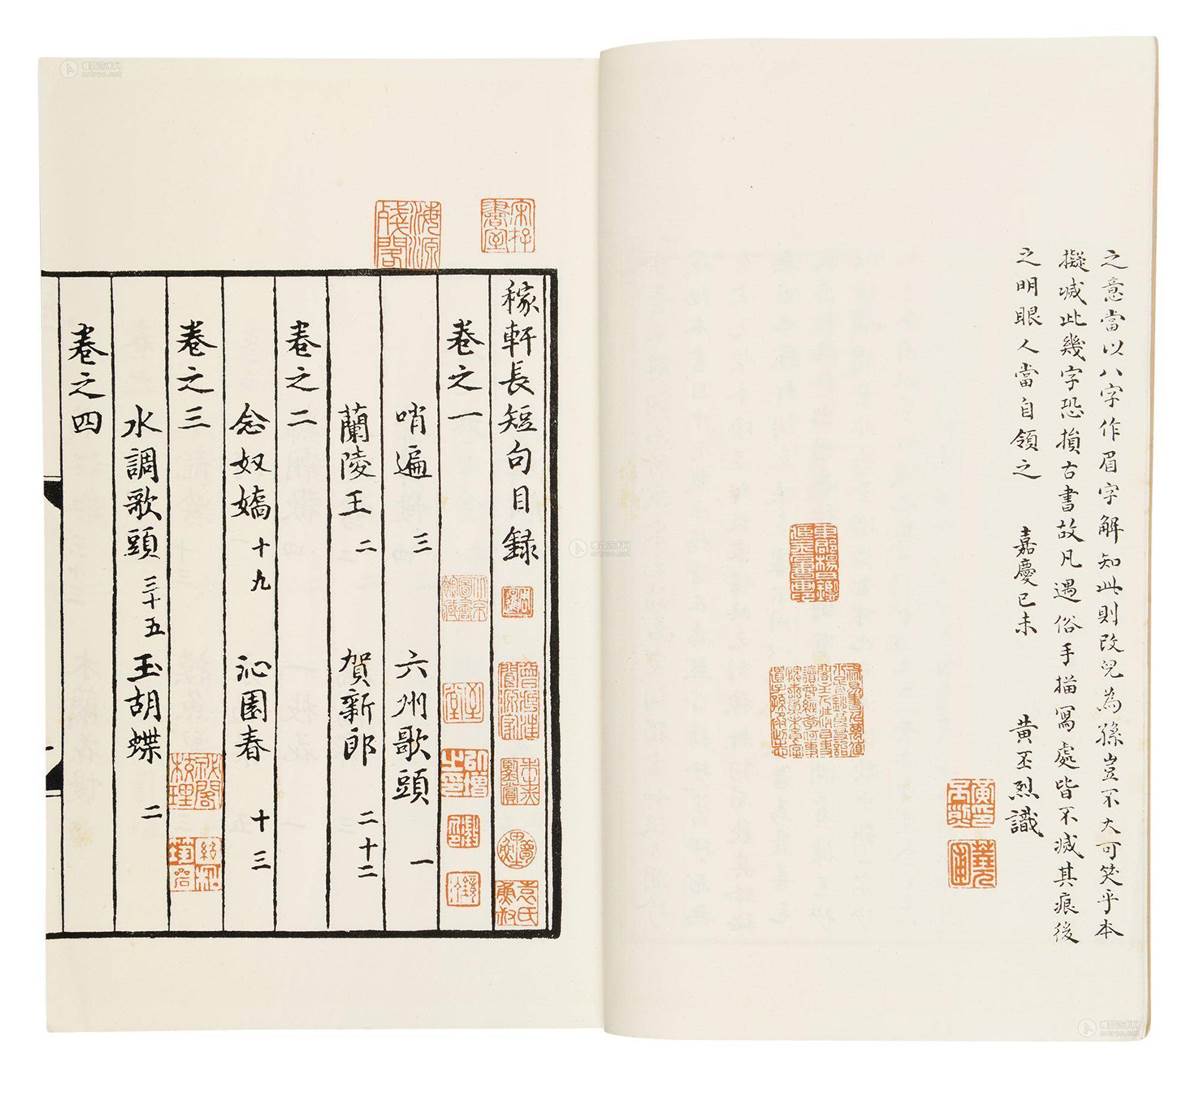 之意當以八字作眉字解知此則改兒為孫豈不大可笑乎本
擬減此幾字恐損古書故凡遇俗手描寫處皆不減其痕後
之明眼人當自領之 嘉慶己未 黃丕烈識
稼軒長短句目錄
卷之一
哨遍 三 六州歌頭 一
蘭陵王 二 賀新郎 二十二
卷之二
念奴嬌 十九 沁園春 十三
卷之三
水調歌頭 三十五 玉胡蝶 二
卷之四
宋存書室
海源殘閣
袁氏